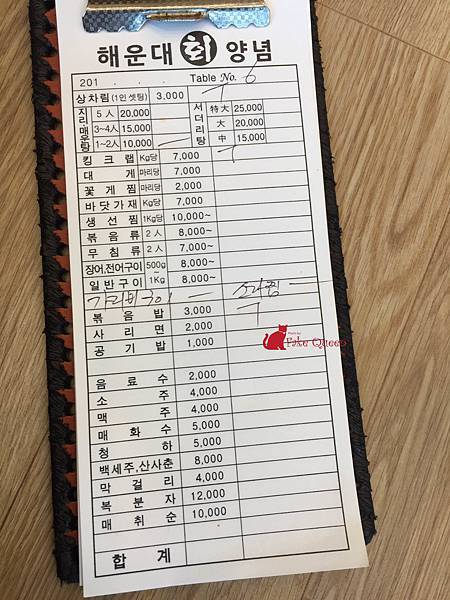 해운대 회 양념
201 . . . Table No. 6
상차림(1인 셋팅) 3,000
지리매운탕 5人 20,000 서더리탕 特大 25,000
3~4人 15,000 大 20,000
1~2人 10,000 中 15,000
킹크랩 Kg당 7,000
대게 마리당 7,000
꽃게찜 마리당 2,000
바닷가재 Kg당 7,000
생선찜 1Kg당 10,000~
볶음류 2人 8,000~
무침류 2人 7,000~
장어,전어구이 500g 8,000~
일반구이 1Kg 8,000~
가리비구이 소라찜
볶음밥 3,000
사리면 2,000
공기밥 1,000
Fake Queen
음료수 2,000
소주 4,000
맥주 4,000
매화수 5,000
청하 5,000
백세주,산사춘 8,000
막걸리 4,000
복분자 12,000
매취순 10,000
합계